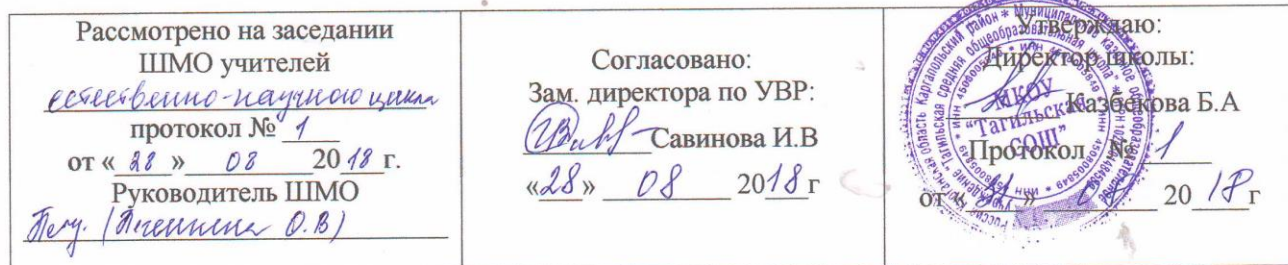 Рассмотрено на заседании
ШМО учителей
естественно-научного цикла
протокол № 1
от « 28 » 08 2018 г.
Руководитель ШМО
Печ. (Печенкина О.В)
Согласовано:
Зам. директора по УВР:
Савинова И.В
«28» 08 2018 г
Утверждаю:
Директор школы:
Казбекова Б.А
Протокол № 1
от « 31 » 08 2018 г
МКОУ
"Тагильская
СОШ"